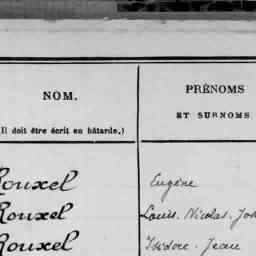 NOM.
(Il doit être écrit en bâtarde.)
PRÉNOMS
ET SURNOMS
Rouxel Eugène
Rouxel Louis. Nicolas. Jos
Rouxel Isidore. Jean